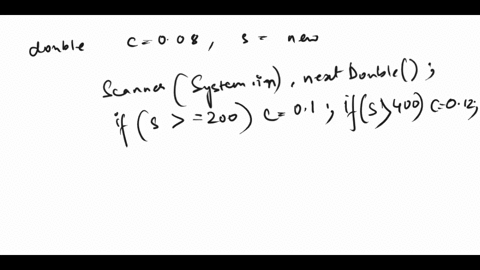 double c=0.08, s = new
Scanner(System.in), nextDouble();
if (s >=200) c=0.1; if(s>400) c=0.12;